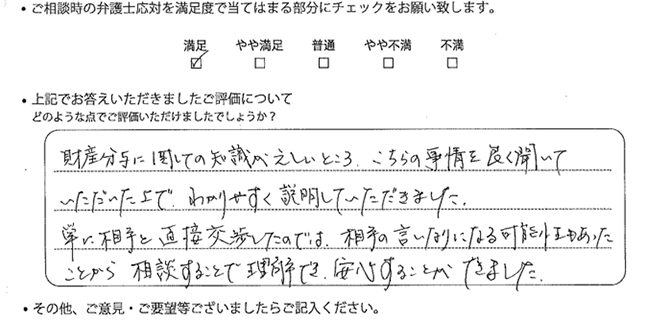 ・ご相談時の弁護士応対を満足度で当てはまる部分にチェックをお願い致します。
満足 やや満足 普通 やや不満 不満
☑ □ □ □ □
・上記でお答えいただきましたご評価について
どのような点でご評価いただけましたでしょうか？
財産分与に関しての知識が乏しいところ、こちらの事情を良く聞いて
いただいた上で、わかりやすく説明していただきました。
単に相手と直接交渉したのでは、相手の言いなりになる可能性もあった
ことから 相談することで理解でき、安心することができました。
・その他、ご意見・ご要望等ございましたらご記入ください。